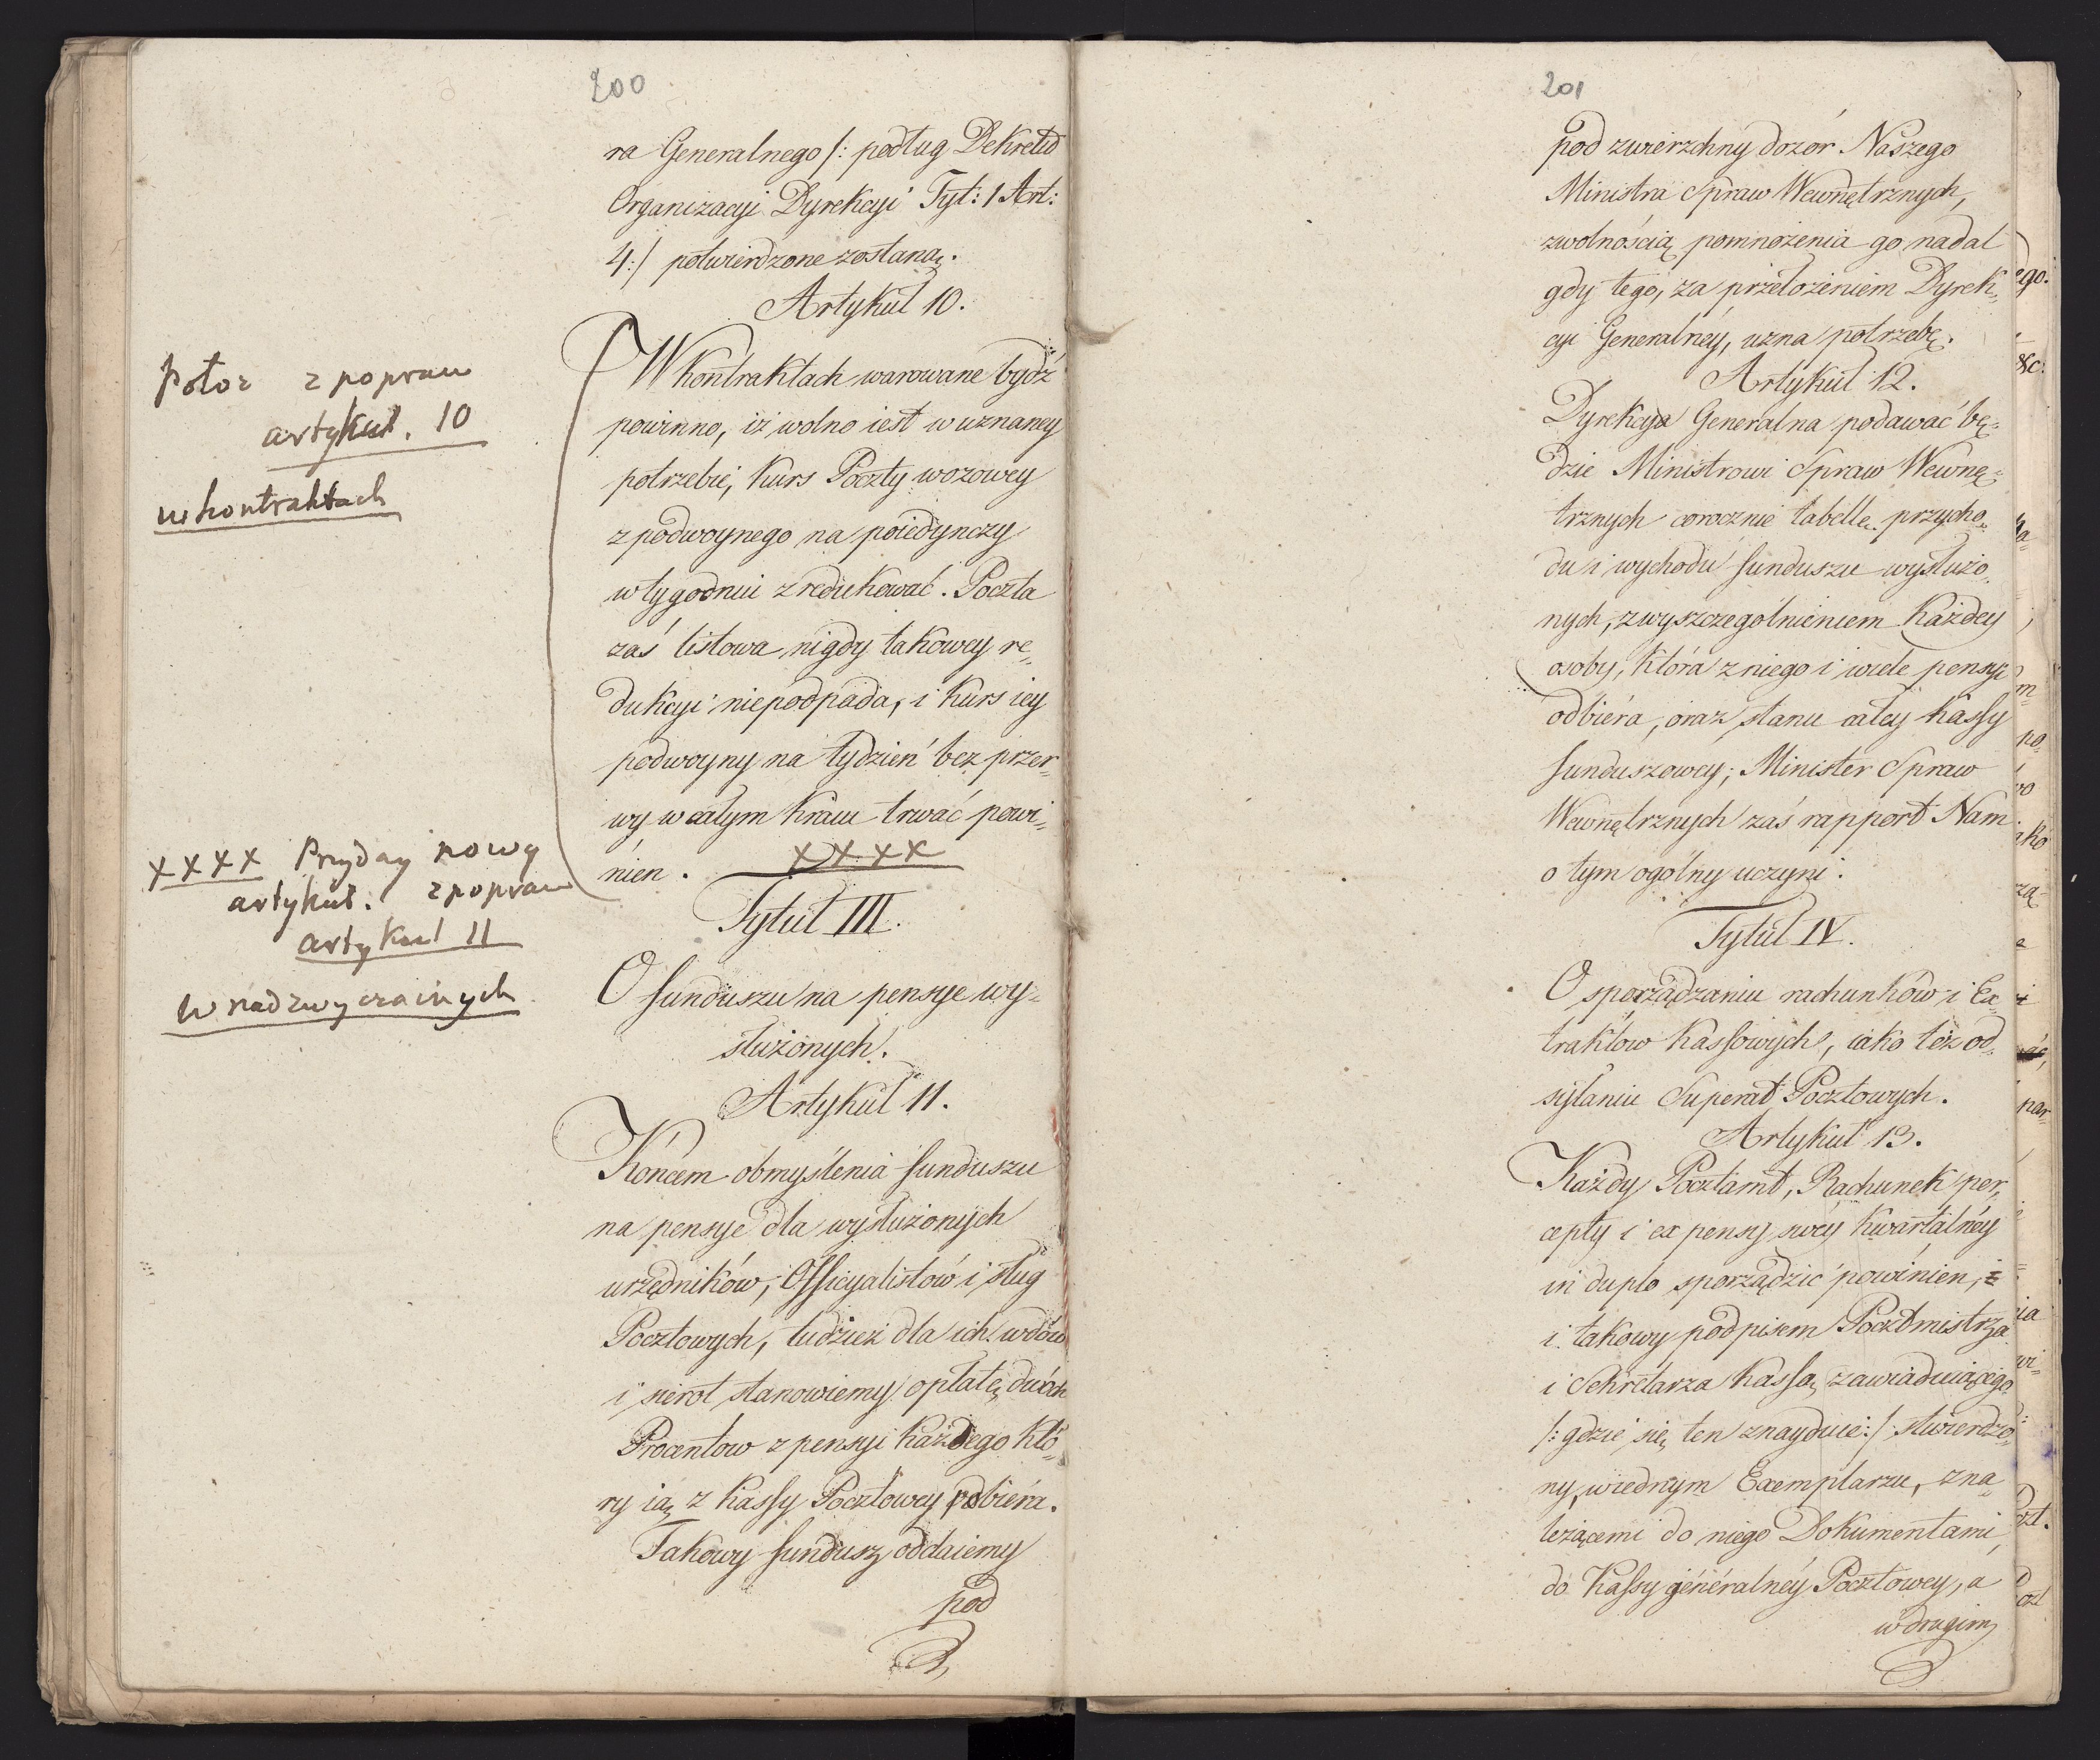 200
ra Generalnego /: podług Dekretu
Organizacyi Dyrekcyi Tyt: 1 Art:
4 :/ potwierdzone zostaną.
Artykuł 10.
W kontraktach warowane bydź
powinno, iż wolno iest w uznaney
potrzebie, kurs Poczty wozowey
z podwoynego na poiedynczy
w tygodniu zredukować. Poczta
zaś listowa nigdy takowey re„
dukcyi niepodpada, i kurs iey
podwoyny na tydzień bez przer„
wy w całym kraiu trwać powi„
nien. ××××
Tytuł III.
O funduszu na pensye wy„
służonych.
Artykuł 11.
Końcem obmyślenia funduszu
na pensye dla wysłużonych
urzędników, Officyalistów i sług
Pocztowych, tudzież dla ich wdów
i sierot stanowiemy opłatę dwóch
Procentow z pensyi każdego któ„
ry ią z Kassy Pocztowey pobiera.
Takowy fundusz oddaiemy
pod
Połoz z popraw
artykuł. 10
w kontraktach
×××× Przyday nowy
artykuł. z popraw
artykuł 11
w nadzwyczainych
201
pod zwierzchny dozór Naszego
Ministra Spraw Wewnętrznych,
zwolnością pomnożenia go nadal
gdy tego, za przełożeniem Dyrek„
cyi Generalnéy, uzna potrzebę.
Artykuł 12.
Dyrekcya Generalna podawać bę„
dzie Ministrowi Spraw Wewnę„
trznych corocznie tabellę przycho„
du i wychodu funduszu wysłużo„
nych, z wyszczególnieniem każdey
osoby, która z niego i wiele pensyi
odbiera, oraz stanu całey kassy
funduszowey; Minister Spraw
Wewnętrznych zaś rapport Nam
o tym ogólny uczyni.
Tytuł IV.
O sporządzaniu rachunków i Ex„
traktow Kassowych, iako też od„
syłaniu Superat Pocztowych.
Artykuł 13.
Każdy Pocztamt, Rachunek per„
cepty i expensy swey kwartalnéy
in duplo sporządzić powinien,
i takowy podpisem Pocztmistrza
i Sekretarza Kassą zawiaduiącego
/: gdzie się ten znayduie :/ stwierdzo„
ny, w iednym Exemplarzu, z na„
leżącemi do niego Dokumentami,
do Kassy géneralnéy Pocztowey, a
w drugim